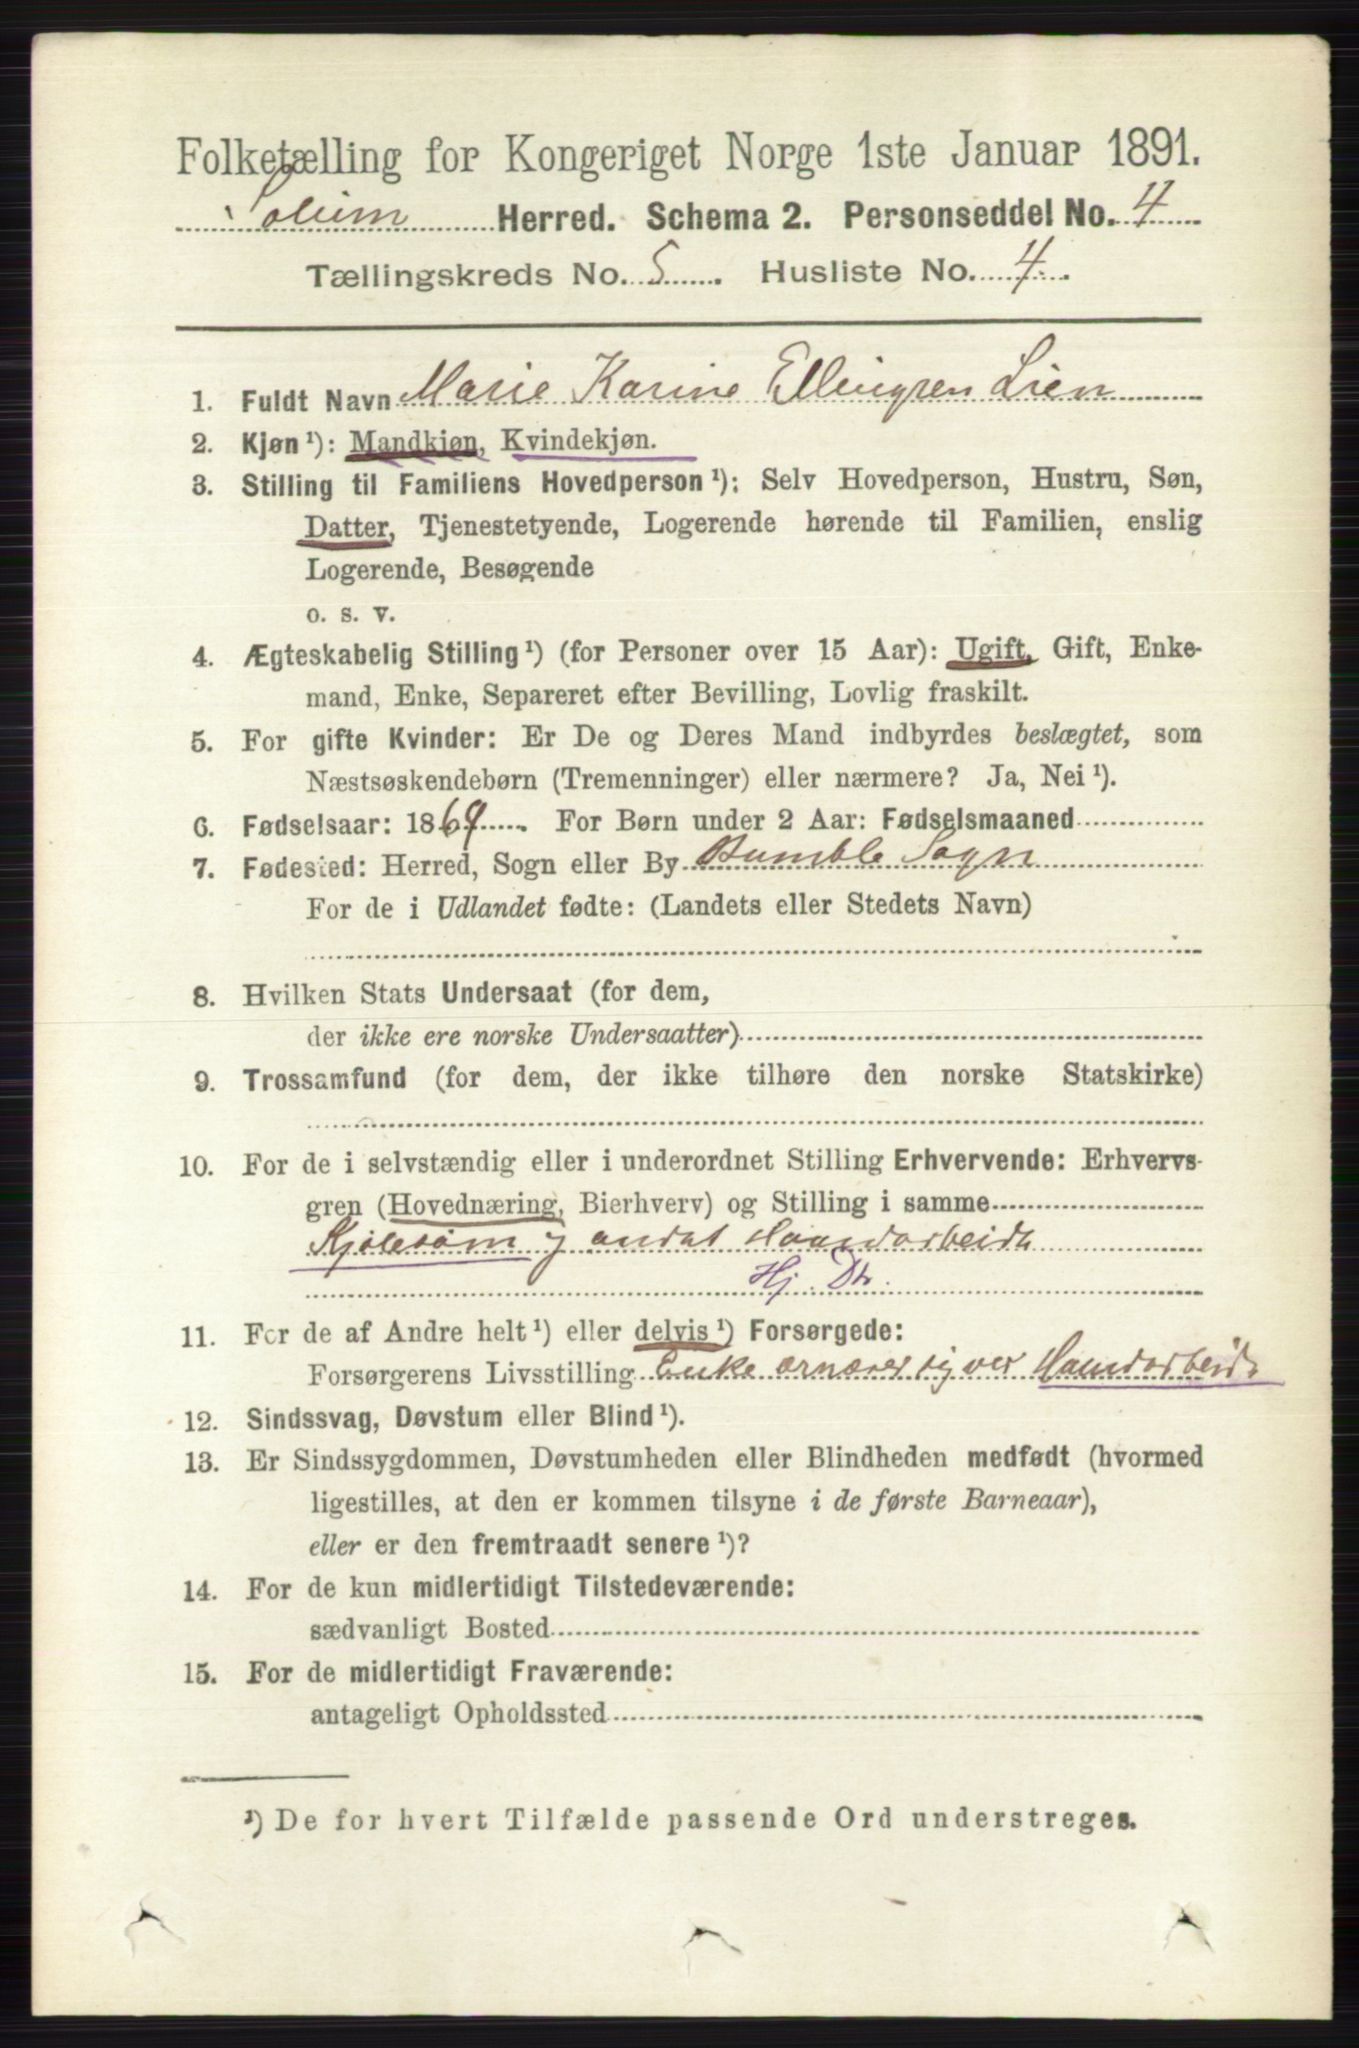 Folketælling for Kongeriget Norge 1ste Januar 1891.
Solum Herred. Schema 2. Personseddel No. 4
Tællingskreds No. 5. Husliste No. 4.
1. Fuldt Navn Marie Karine Ellingren Lien
2. Kjøn ¹): Mandkjøn, Kvindekjøn.
3. Stilling til Familiens Hovedperson ¹): Selv Hovedperson, Hustru, Søn,
Datter, Tjenestetyende, Logerende hørende til Familien, enslig
Logerende, Besøgende
o. s. v.
4. Ægteskabelig Stilling ¹) (for Personer over 15 Aar): Ugift, Gift, Enke-
mand, Enke, Separeret efter Bevilling, Lovlig fraskilt.
5. For gifte Kvinder: Er De og Deres Mand indbyrdes beslægtet, som
Næstsøskendebørn (Tremenninger) eller nærmere? Ja, Nei ¹).
6. Fødselsaar: 1869. For Børn under 2 Aar: Fødselsmaaned
7. Fødested: Herred, Sogn eller By Bamble Sogn
For de i Udlandet fødte: (Landets eller Stedets Navn)
8. Hvilken Stats Undersaat (for dem,
der ikke ere norske Undersaatter)
9. Trossamfund (for dem, der ikke tilhøre den norske Statskirke)
10. For de i selvstændig eller i underordnet Stilling Erhvervende: Erhvervs-
gren (Hovednæring, Bierhverv) og Stilling i samme
Kjolesøm og andet Haandarbeide
Hj. Dtr.
11. For de af Andre helt ¹) eller delvis ¹) Forsørgede:
Forsørgerens Livsstilling Enke ernærer sig ved Haandarbeide
12. Sindssvag, Døvstum eller Blind ¹).
13. Er Sindssygdommen, Døvstumheden eller Blindheden medfødt (hvormed
ligestilles, at den er kommen tilsyne i de første Barneaar),
eller er den fremtraadt senere ¹)?
14. For de kun midlertidigt Tilstedeværende:
sædvanligt Bosted
15. For de midlertidigt Fraværende:
antageligt Opholdssted
¹) De for hvert Tilfælde passende Ord understreges.